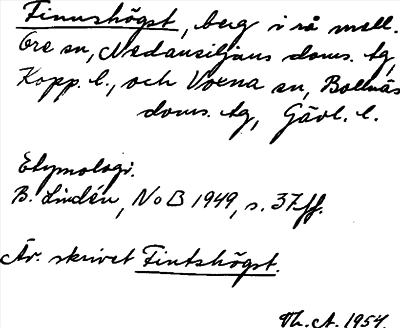 Finnshögst, berg i rå mell.
Ore sn, Nedansiljans doms. tg,
Kopp. l., och Voxna sn, Bollnäs
doms. tg, Gävl. l.
Etymologi.
B. Lindén, NoB 1949, s. 37 ff.
Äv. skrivet Fintshögst.
Th. A. 1954.